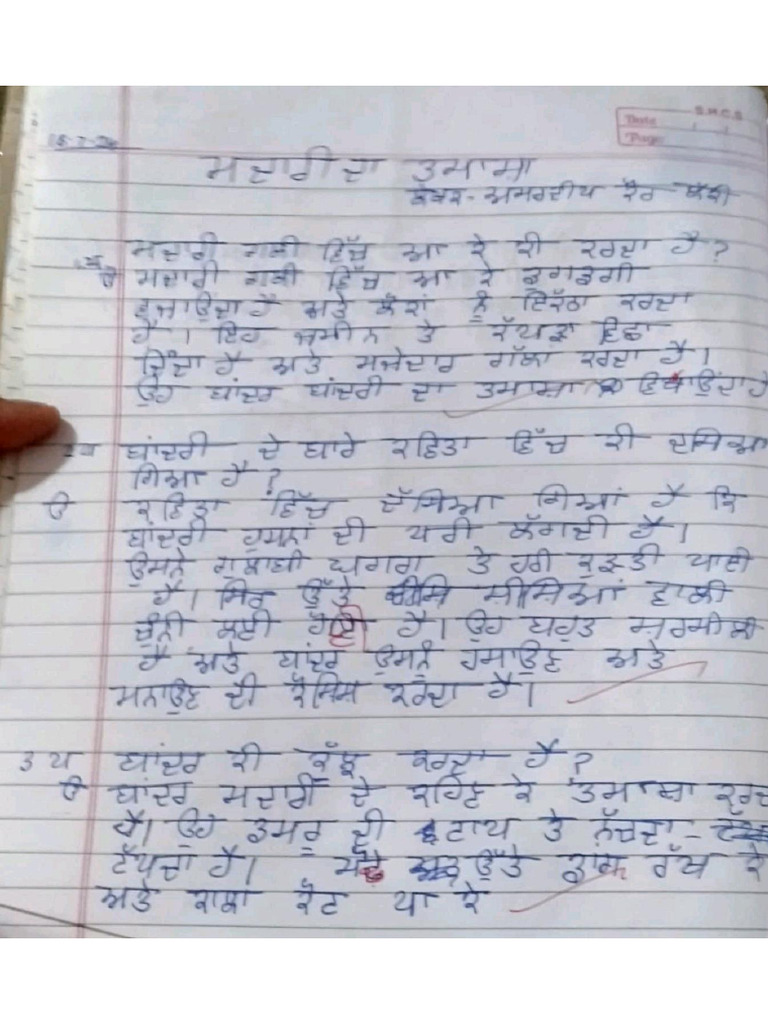 S.M.C.S
Date
Page
ਮਦਾਰੀ ਦਾ ਤਮਾਸਾ
ਲੇਖਕ- ਅਮਰਦੀਪ ਕੌਰ
ਮਦਾਰੀ ਗਲੀ ਵਿੱਚ ਆ ਕੇ ਕੀ ਕਰਦਾ ਹੈ?
ਉ ਮਦਾਰੀ ਗਲੀ ਵਿੱਚ ਆ ਕੇ ਡੁਗਡੁਗੀ
ਵਜਾਉਂਦਾ ਹੈ ਅਤੇ ਲੋਕਾਂ ਨੂੰ ਇਕੱਠਾ ਕਰਦਾ
ਹੈ। ਇਹ ਜਮੀਨ ਤੇ ਕੱਪੜਾ ਵਿਛਾ
ਦਿੰਦਾ ਹੈ ਅਤੇ ਮਜੇਦਾਰ ਗੱਲਾਂ ਕਰਦਾ ਹੈ।
ਉਹ ਬਾਂਦਰ ਬਾਂਦਰੀ ਦਾ ਤਮਾਸ਼ਾ ਵਿਖਾਉਂਦਾ ਹੈ
2 ਪ ਬਾਂਦਰੀ ਦੇ ਬਾਰੇ ਕਵਿਤਾ ਵਿੱਚ ਕੀ ਦਸਿਆ
ਗਿਆ ਹੈ?
ਉ ਕਵਿਤਾ ਵਿੱਚ ਦੱਸਿਆ ਗਿਆਂ ਹੈ ਕਿ
ਬਾਂਦਰੀ ਹੁਸਨਾਂ ਦੀ ਪਰੀ ਲੱਗਦੀ ਹੈ।
ਉਸਨੇ ਗੁਲਾਬੀ ਘਗਰਾ ਤੇ ਹਰੀ ਕੁੜਤੀ ਪਾਈ
ਹੈ। ਸਿਰ ਉੱਤੇ ਸੀਸਿਆਂ ਵਾਲੀ
ਚੁੰਨੀ ਲਈ ਹੋਈ ਹੈ। ਉਹ ਬਹੁਤ ਸ਼ਰਮੀਲੀ
ਹੈ ਅਤੇ ਬਾਂਦਰ ਉਸਨੂੰ ਹਸਾਉਣ ਅਤੇ
ਮਨਾਉਣ ਦੀ ਕੋਸਿਸ਼ ਕਰਦਾ ਹੈ।
3 ਪ ਬਾਂਦਰ ਕੀ ਕੁੱਝ ਕਰਦਾ ਹੈ?
ਉ ਬਾਂਦਰ ਮਦਾਰੀ ਦੇ ਕਹਿਣ ਤੇ ਤਮਾਸ਼ਾ ਕਰਦਾ
ਹੈ। ਉਹ ਡਮਰੂ ਦੀ ਟਾਪ ਤੇ ਨੱਚਦਾ-
ਟੱਪਦਾ ਹੈ। ਮੋਢੇ ਉੱਤੇ ਡਾਂਗ ਰੱਖ ਕੇ
ਅਤੇ ਕਾਲਾ ਕੋਟ ਪਾ ਕੇ